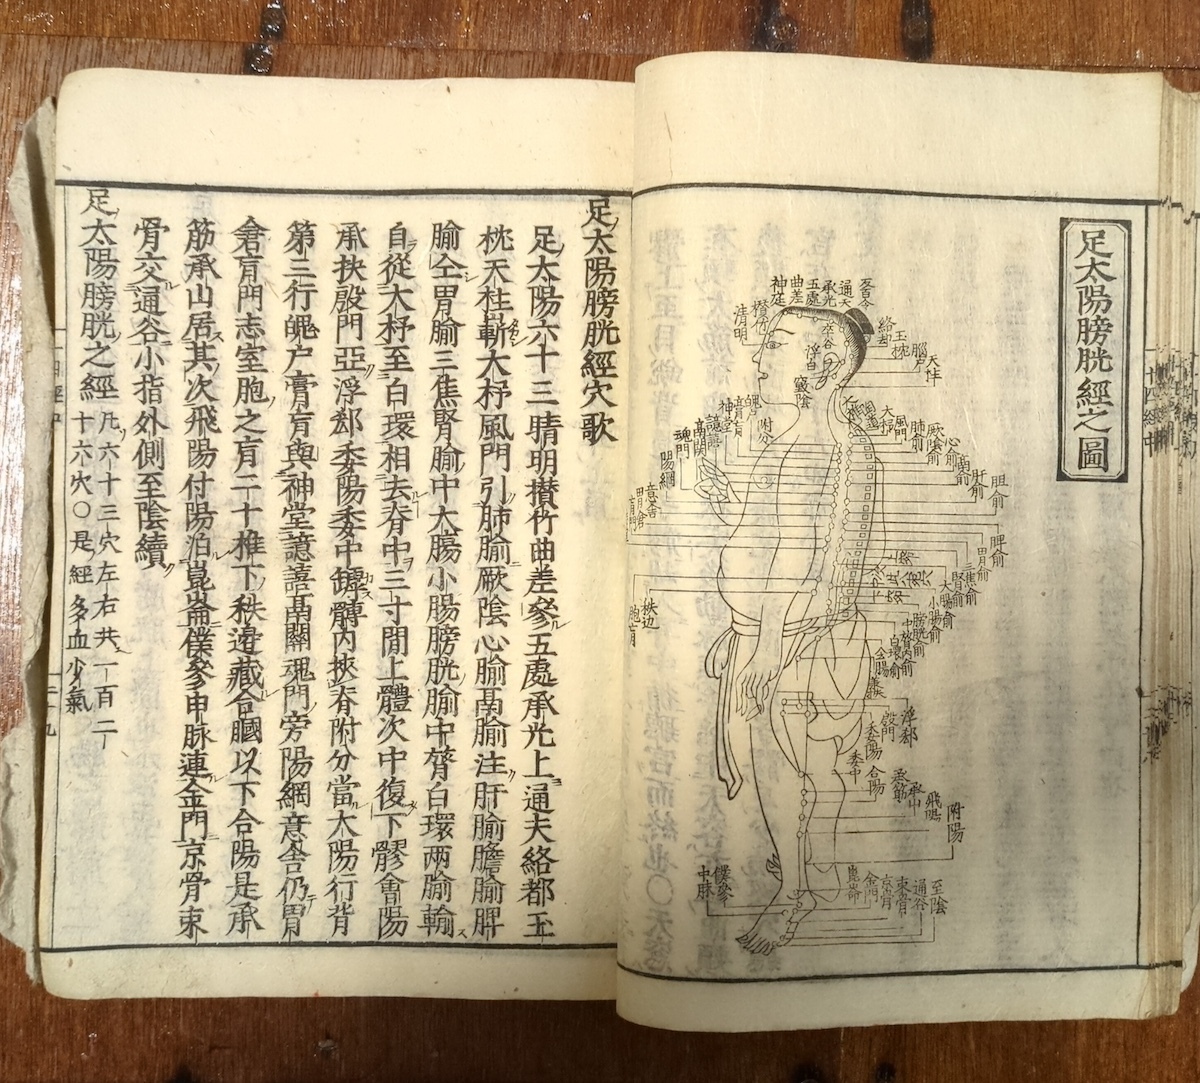 足太陽膀胱經之圖
神庭
曲差
五處
承光
通天
清明
攅竹
浮白
竅陰
絡却
玉枕
脳户
天柱
附分
魄户
膏肓
神堂
譩譆
膈関
魂門
陽綱
意舎
胃倉
大杼
風門
肺俞
厥陰俞
心俞
膈俞
肝俞
胆俞
脾俞
胃俞
三焦俞
腎俞
大腸俞
小腸俞
膀胱俞
中膂內俞
白環俞
秩边
胞肓
浮郄
殷門
委陽
委中
合陽
承筋
承山
飛陽
附陽
僕參
申脉
崑崙
金門
京骨
束骨
通谷
至陰
足太陽膀胱經穴歌
足太陽六十三晴明攅竹曲差參五處承光上通夫絡都玉
枕天柱嶄大杼風門引肺腧厥陰心腧膈腧注肝腧膽腧脾
腧仝胃腧三焦腎腧中大膓小膓膀胱腧中膂白環兩腧輸
自從大杼至白環相去脊中三寸間上體次中復下髎會陽
承扶殷門亞浮郄委陽委中罅髆內挾脊附分當太陽行背
第三行魄户膏肓與神堂譩譆膈關魂門旁陽綱意舎仍胃
倉肓門志室胞之肓二十椎下秩邊藏合膕以下合陽是承
筋承山居其次飛陽付陽泊崑崙僕參申脉連金門京骨束
骨交通谷小指外側至陰續
足太陽膀胱之經 凡六十三穴左右共一百二
十六穴○是經多血少氣